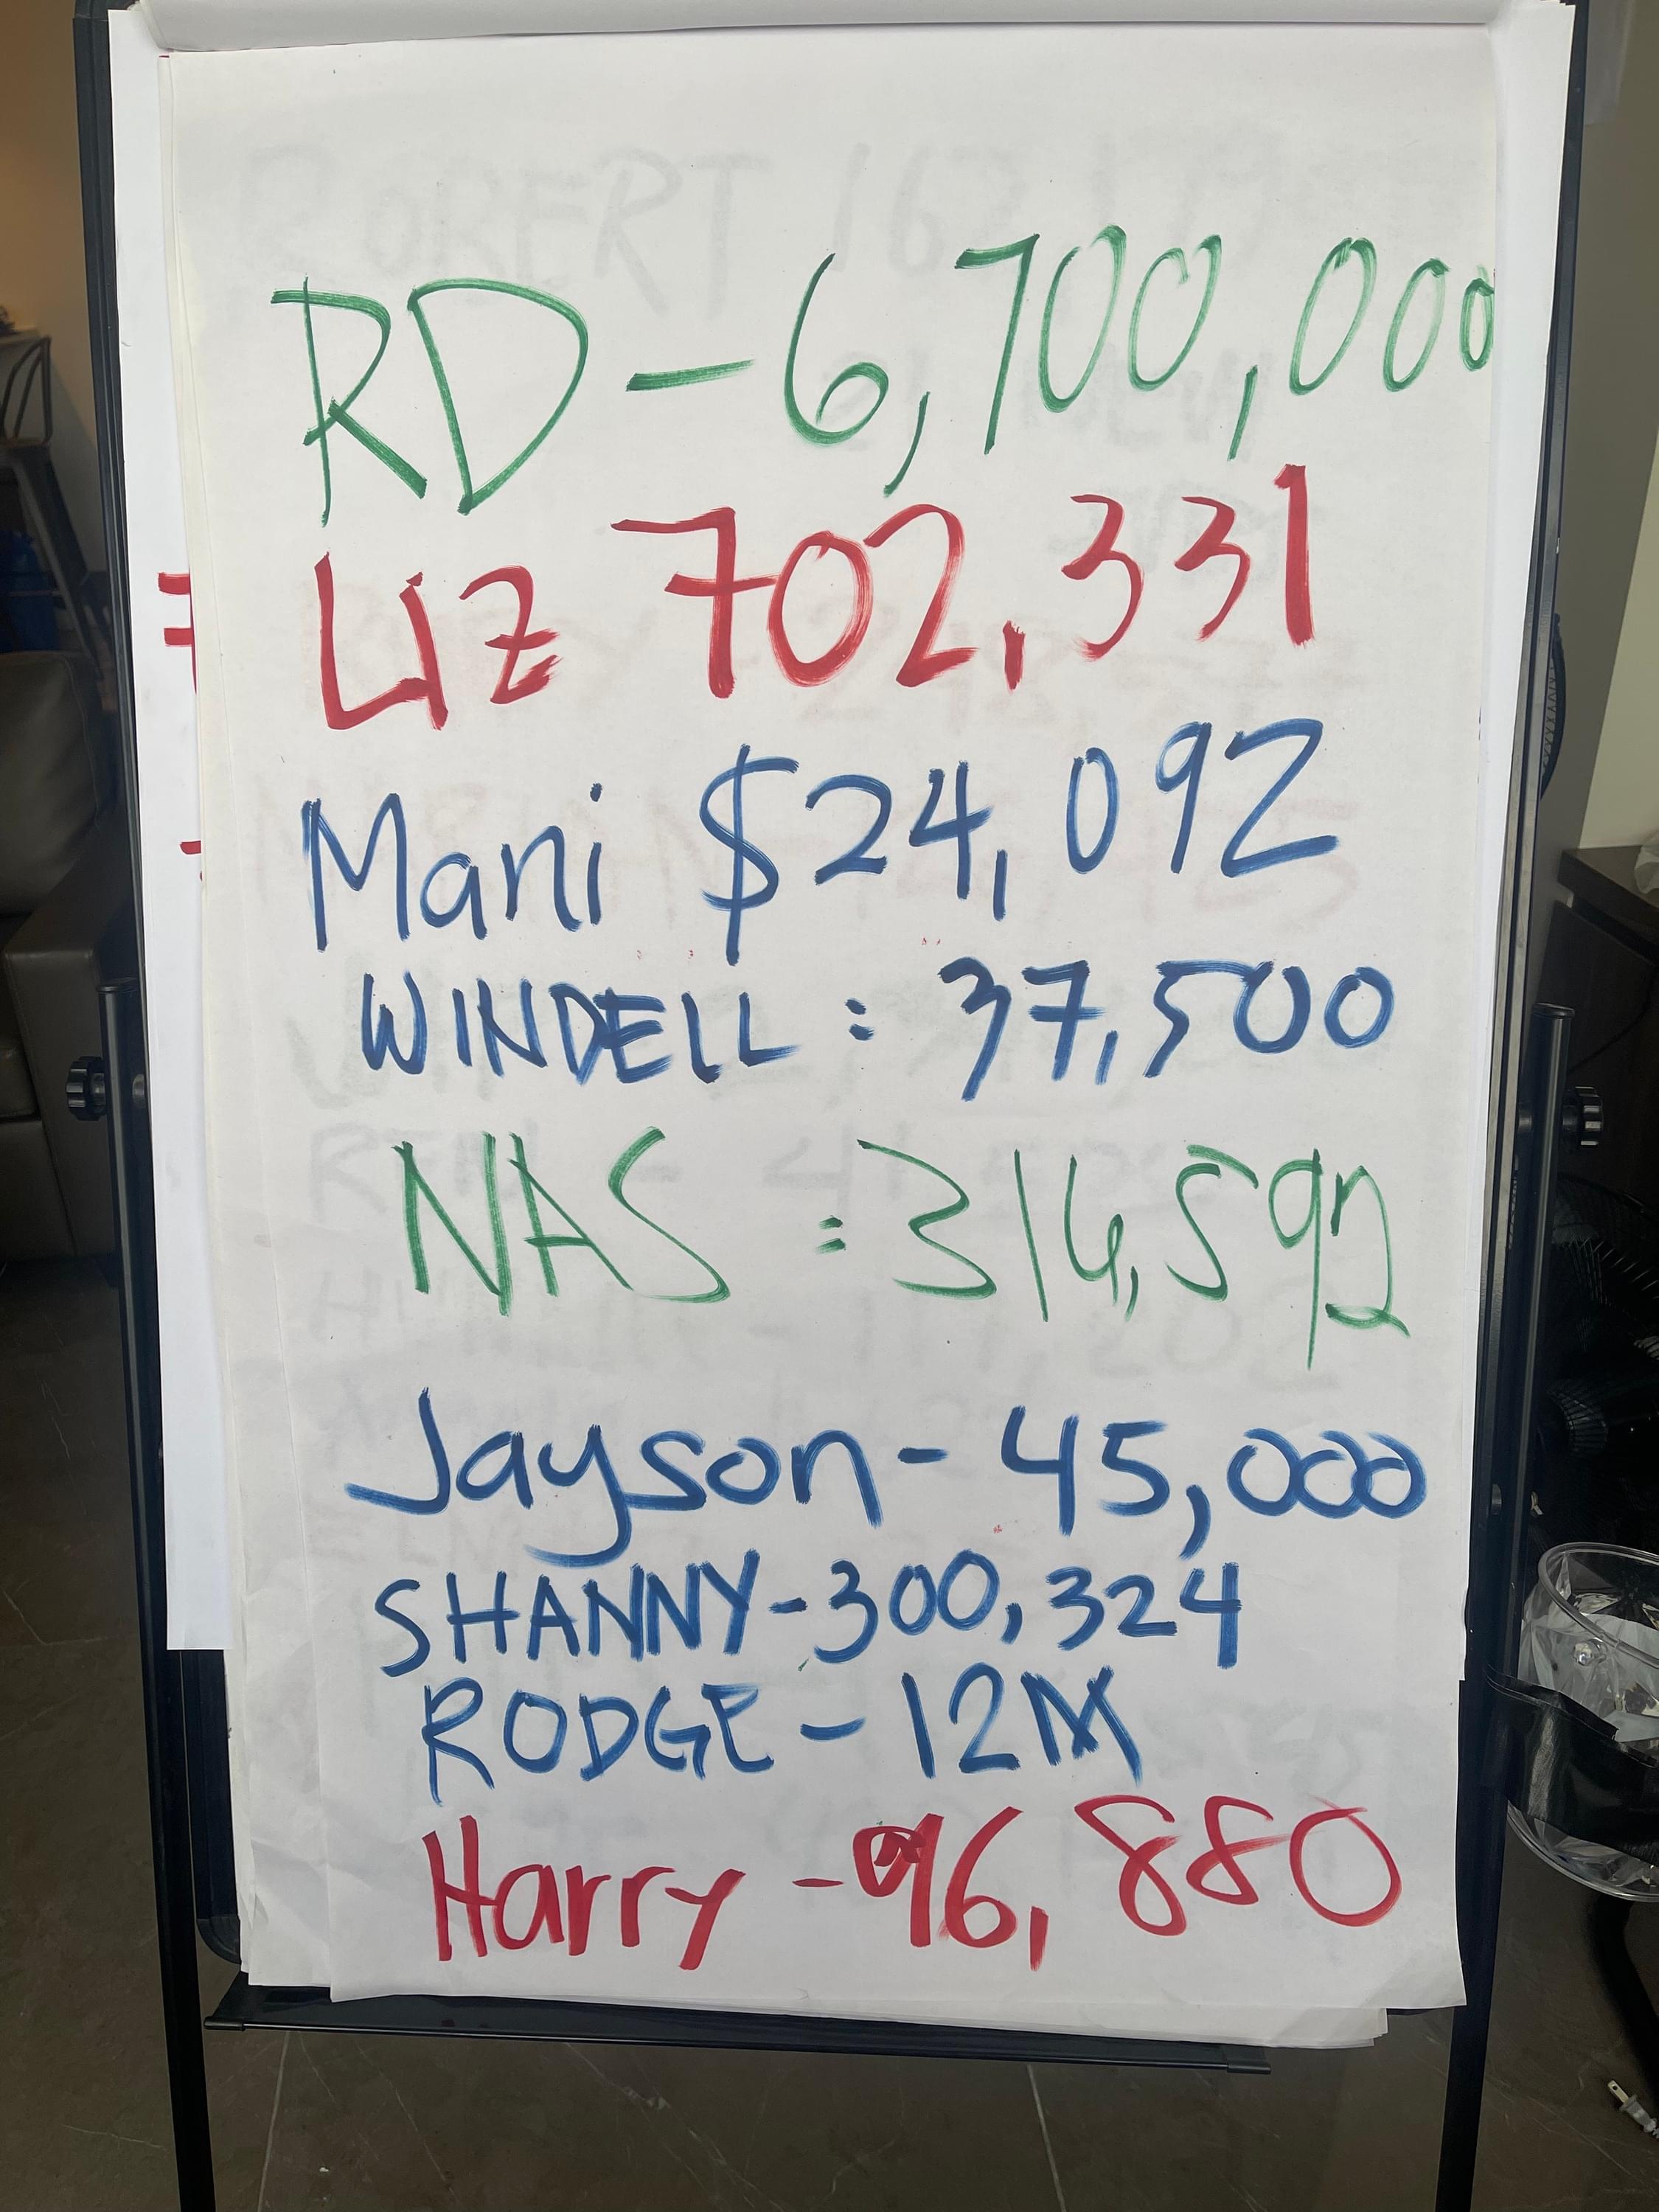 RD - 6,700,000
Liz 702,331
Mani $24,092
WINDELL : 37,500
NAS : 316,592
Jayson - 45,000
SHANNY - 300,324
RODGE - 12M
Harry - 96,880